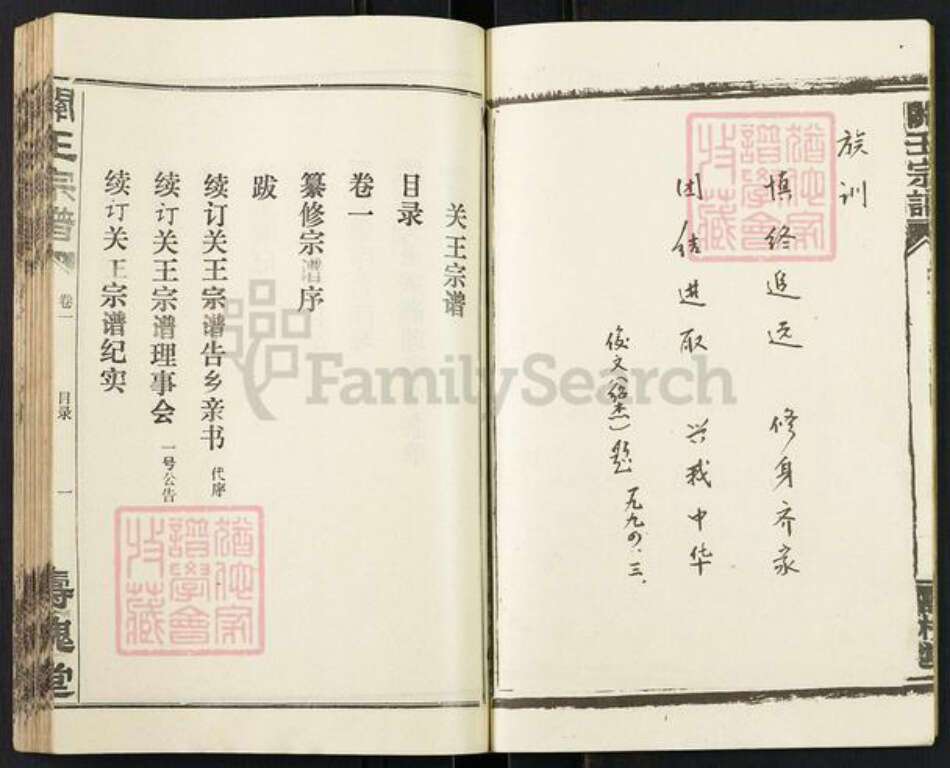 族训
慎终追远 修身齐家
团结进取 兴我中华
俊文(绍杰)题 一九九四.三.
關王宗譜
关王宗谱
目录
卷一
纂修宗谱序
跋
续订关王宗谱告乡亲书 代序
续订关王宗谱理事会 一号公告
续订关王宗谱纪实
關王宗譜 卷一 目录 一 壽槐堂
猶他家譜學會收藏
猶他家譜學會收藏
FamilySearch